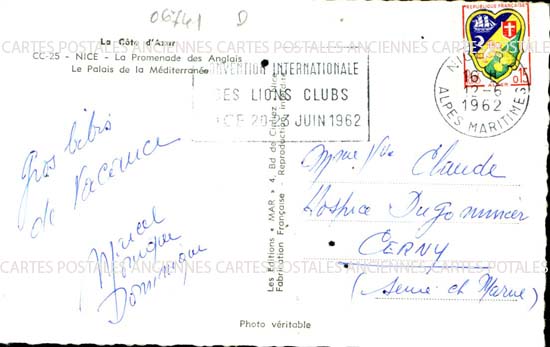 06741 D
La Côte d'Azur
CC-25 - NICE - La Promenade des Anglais
Le Palais de la Méditerranée
CONVENTION INTERNATIONALE
DES LIONS CLUBS
NICE 20-24 JUIN 1962
REPUBLIQUE FRANÇAISE
0,15
NICE
16
12-6
1962
ALPES MARITIMES
CARTES POSTALES ANCIENNES CARTES POSTALES ANCIENNES CARTES POSTALES ANCIENNES
Gros bébés
de Vacances
Mireal
Monique
Dominique
Les Editions « MAR » 4, Bd de Cimiez, Nice
Fabrication Française - Reproduction interdite
Mme Vve Claude
Hospice Dugommier
CERNY
(Seine et Marne)
CARTES POSTALES ANCIENNES CARTES POSTALES ANCIENNES CARTES POSTALES
Photo véritable